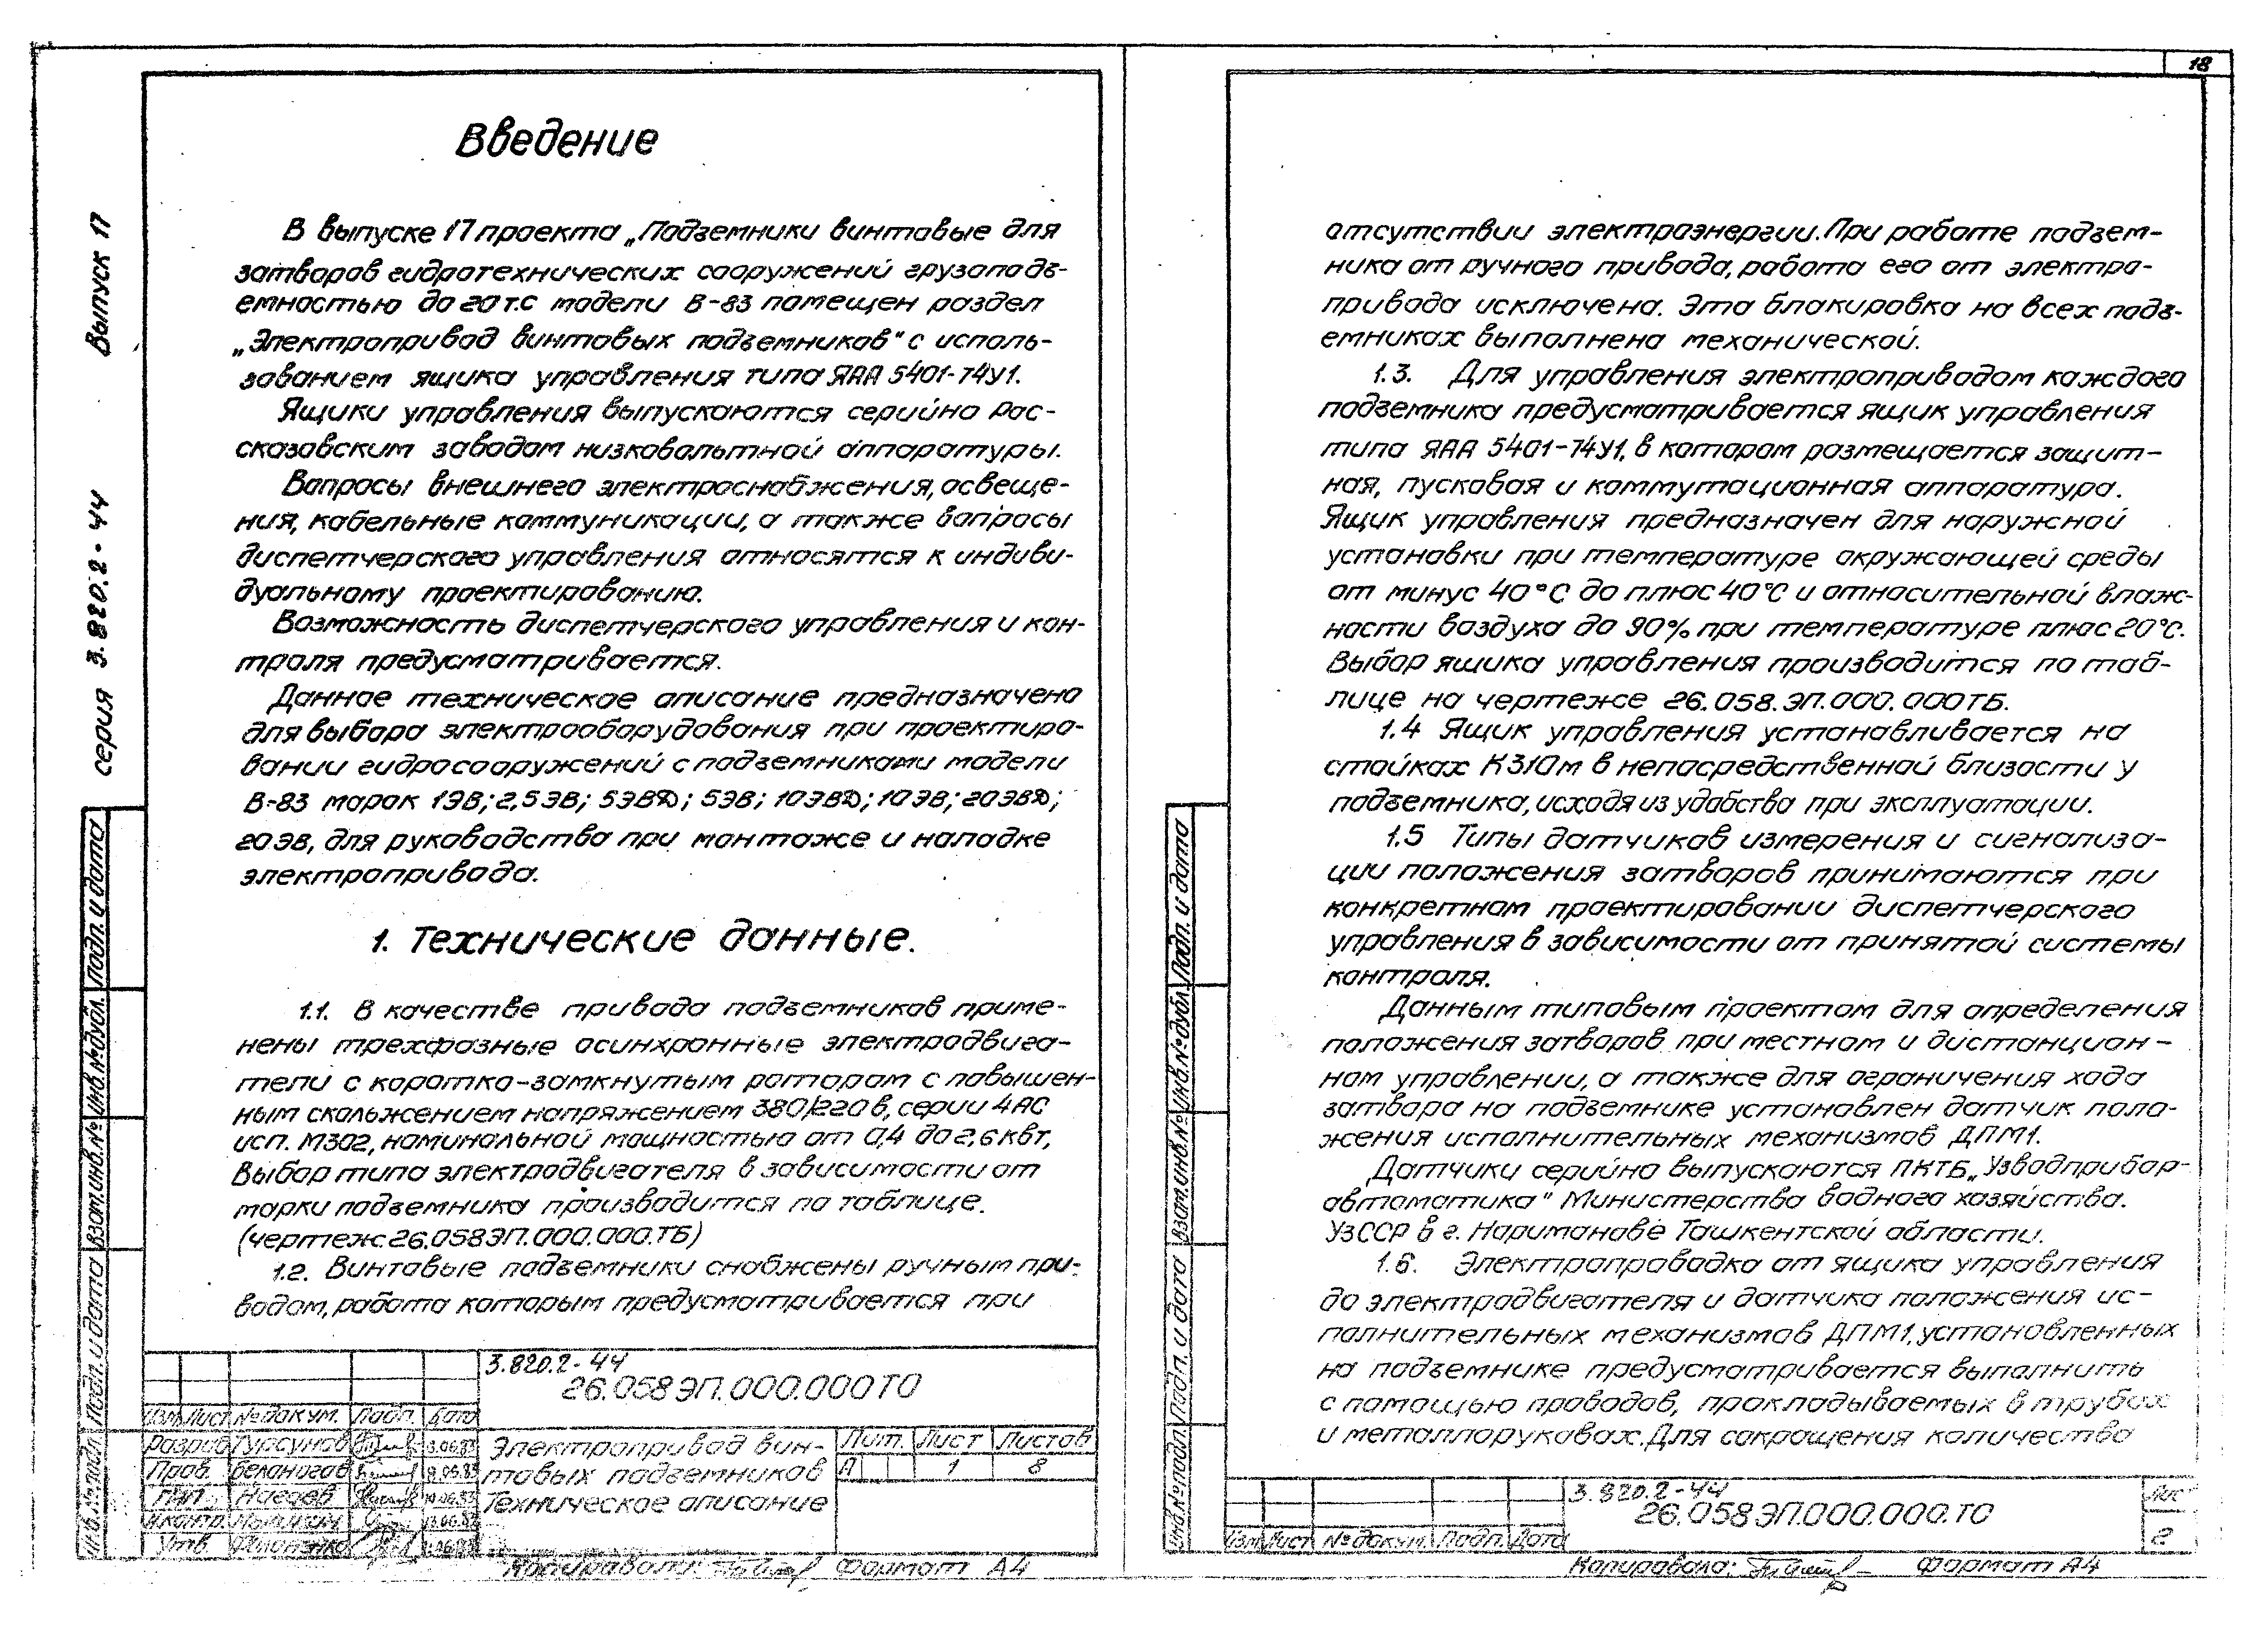 18
Выпуск 17
серия 3.820.2-44
Введение
В выпуске 17 проекта „Подъемники винтовые для
затворов гидротехнических сооружений грузоподъ-
емностью до 20 т.с модели В-83 помещен раздел
„Электропривод винтовых подъемников" с исполь-
зованием ящика управления типа ЯАА 5401-74У1.
Ящики управления выпускаются серийно Рас-
сказовским заводом низковольтной аппаратуры.
Вопросы внешнего электроснабжения, освеще-
ния, кабельные коммуникации, а также вопросы
диспетчерского управления относятся к индиви-
дуальному проектированию.
Возможность диспетчерского управления и кон-
троля предусматривается.
Данное техническое описание предназначено
для выбора электрооборудования при проектиро-
вании гидросооружений с подъемниками модели
В-83 марок 1ЭВ; 2,5ЭВ; 5ЭВД; 5ЭВ; 10ЭВД; 10ЭВ; 20ЭВД;
20ЭВ, для руководства при монтаже и наладке
электропривода.
1. Технические данные.
1.1. В качестве привода подъемников приме-
нены трехфазные асинхронные электродвига-
тели с коротко-замкнутым ротором с повышен-
ным скольжением напряжением 380/220 в, серии 4АС
исп. М302, номинальной мощностью от 0,4 до 2,6 квт,
Выбор типа электродвигателя в зависимости от
марки подъемника производится по таблице.
(чертеж 26.058ЭП.000.000.ТБ)
1.2. Винтовые подъемники снабжены ручным при-
водом, работа которым предусматривается при
3.820.2-44
26.058ЭП.000.000ТО
Изм. Лист № докум. Подп. Дата
Разраб Турсунов
Пров. Белоногов
ГИП Нагаев
Н.контр.
Утв.
Электропривод вин-
товых подъемников
Техническое описание
Лит. Лист Листов
А 1 8
Копировал: Формат А4
Инв.№подл. Подп. и дата Взам.инв.№ Инв.№дубл. Подп. и дата
отсутствии электроэнергии. При работе подъем-
ника от ручного привода, работа его от электро-
привода исключена. Эта блокировка на всех подъ-
емниках выполнена механической.
1.3. Для управления электроприводом каждого
подъемника предусматривается ящик управления
типа ЯАА 5401-74У1, в котором размещается защит-
ная, пусковая и коммутационная аппаратура.
Ящик управления предназначен для наружной
установки при температуре окружающей среды
от минус 40°С до плюс 40°С и относительной влаж-
ности воздуха до 90% при температуре плюс 20°С.
Выбор ящика управления производится по таб-
лице на чертеже 26.058.ЭП.000.000ТБ.
1.4 Ящик управления устанавливается на
стойках К310м в непосредственной близости у
подъемника, исходя из удобства при эксплуатации.
1.5 Типы датчиков измерения и сигнализа-
ции положения затворов принимаются при
конкретном проектировании диспетчерского
управления в зависимости от принятой системы
контроля.
Данным типовым проектом для определения
положения затворов при местном и дистанцион-
ном управлении, а также для ограничения хода
затвора на подъемнике установлен датчик поло-
жения исполнительных механизмов ДПМ1.
Датчики серийно выпускаются ПКТБ „Узводприбор-
автоматика" Министерства водного хозяйства.
УзССР в г. Нариманове Ташкентской области.
1.6. Электропроводка от ящика управления
до электродвигателя и датчика положения ис-
полнительных механизмов ДПМ1, установленных
на подъемнике предусматривается выполнить
с помощью проводов, прокладываемых в трубах
и металлорукавах. Для сокращения количества
3.820.2-44
26.058ЭП.000.000.ТО
Изм. Лист № докум. Подп. Дата
Лис
2
Копировала: Формат А4
Инв.№подл. Подп. и дата Взам.инв.№ Инв.№дубл. Подп. и дата